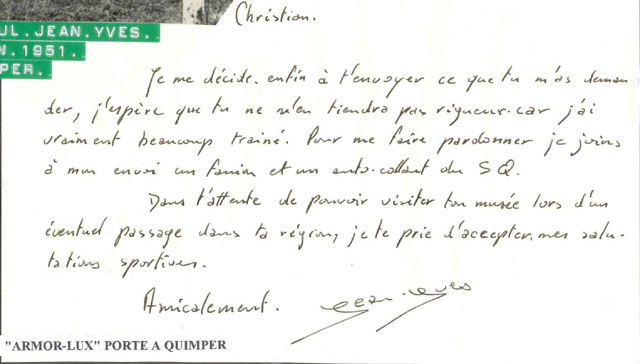 UL.JEAN.YVES.
N.1951.
PER.
Christian.
Je me décide enfin à t'envoyer ce que tu m'as deman-
der, j'espère que tu ne m'en tiendra pas rigueur car j'ai
vraiment beaucoup trainé. Pour me faire pardonner je joins
à mon envoi un fanion et un auto-collant du SQ.
Dans l'attente de pouvoir visiter ton musée lors d'un
éventuel passage dans ta région, je te prie d'accepter mes salu-
tations sportives.
Amicalement. Jean-Yves
"ARMOR-LUX" PORTE A QUIMPER